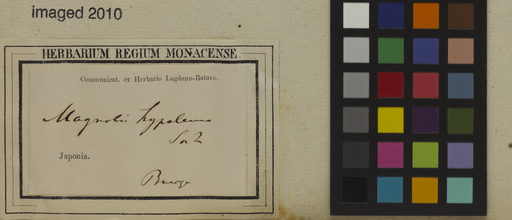 imaged 2010
HERBARIUM REGIUM MONACENSE.
Communicat. ex Herbario Lugduno-Batavo.
Magnolia hypoleuca
Japonia.